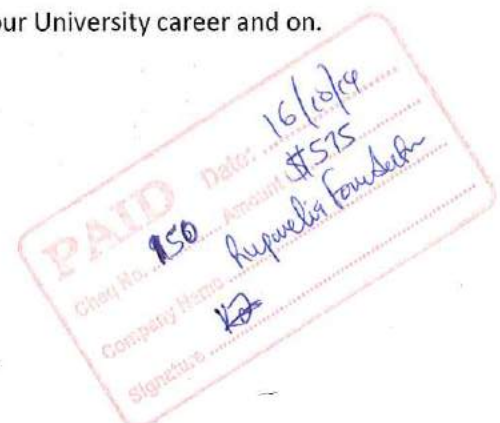 our University career and on.
PAID Date: 16/10/14
Cheq No. 150 Amount $575
Company Name Ruparelia Foundation
Signature